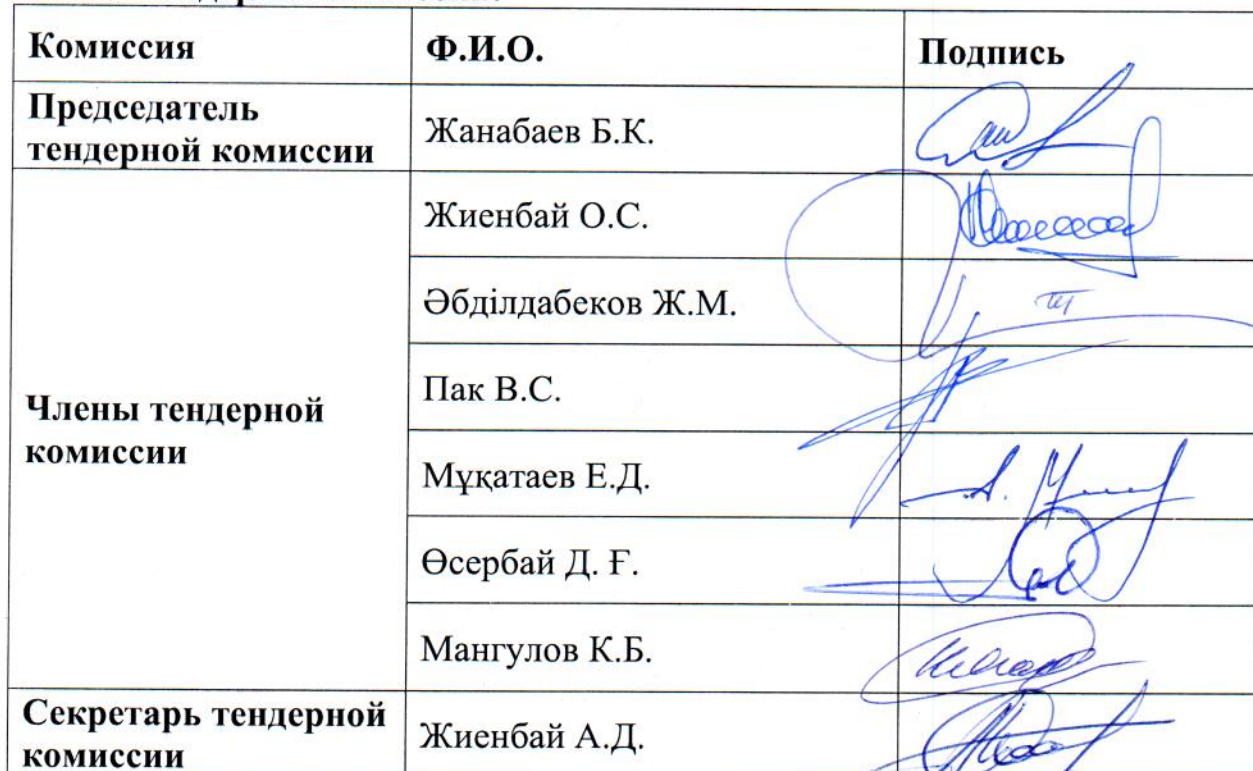 Комиссия Ф.И.О. Подпись
Председатель
тендерной комиссии
Жанабаев Б.К.
Члены тендерной
комиссии
Жиенбай О.С.
Әбділдабеков Ж.М.
Пак В.С.
Мұқатаев Е.Д.
Өсербай Д. Ғ.
Мангулов К.Б.
Секретарь тендерной
комиссии
Жиенбай А.Д.